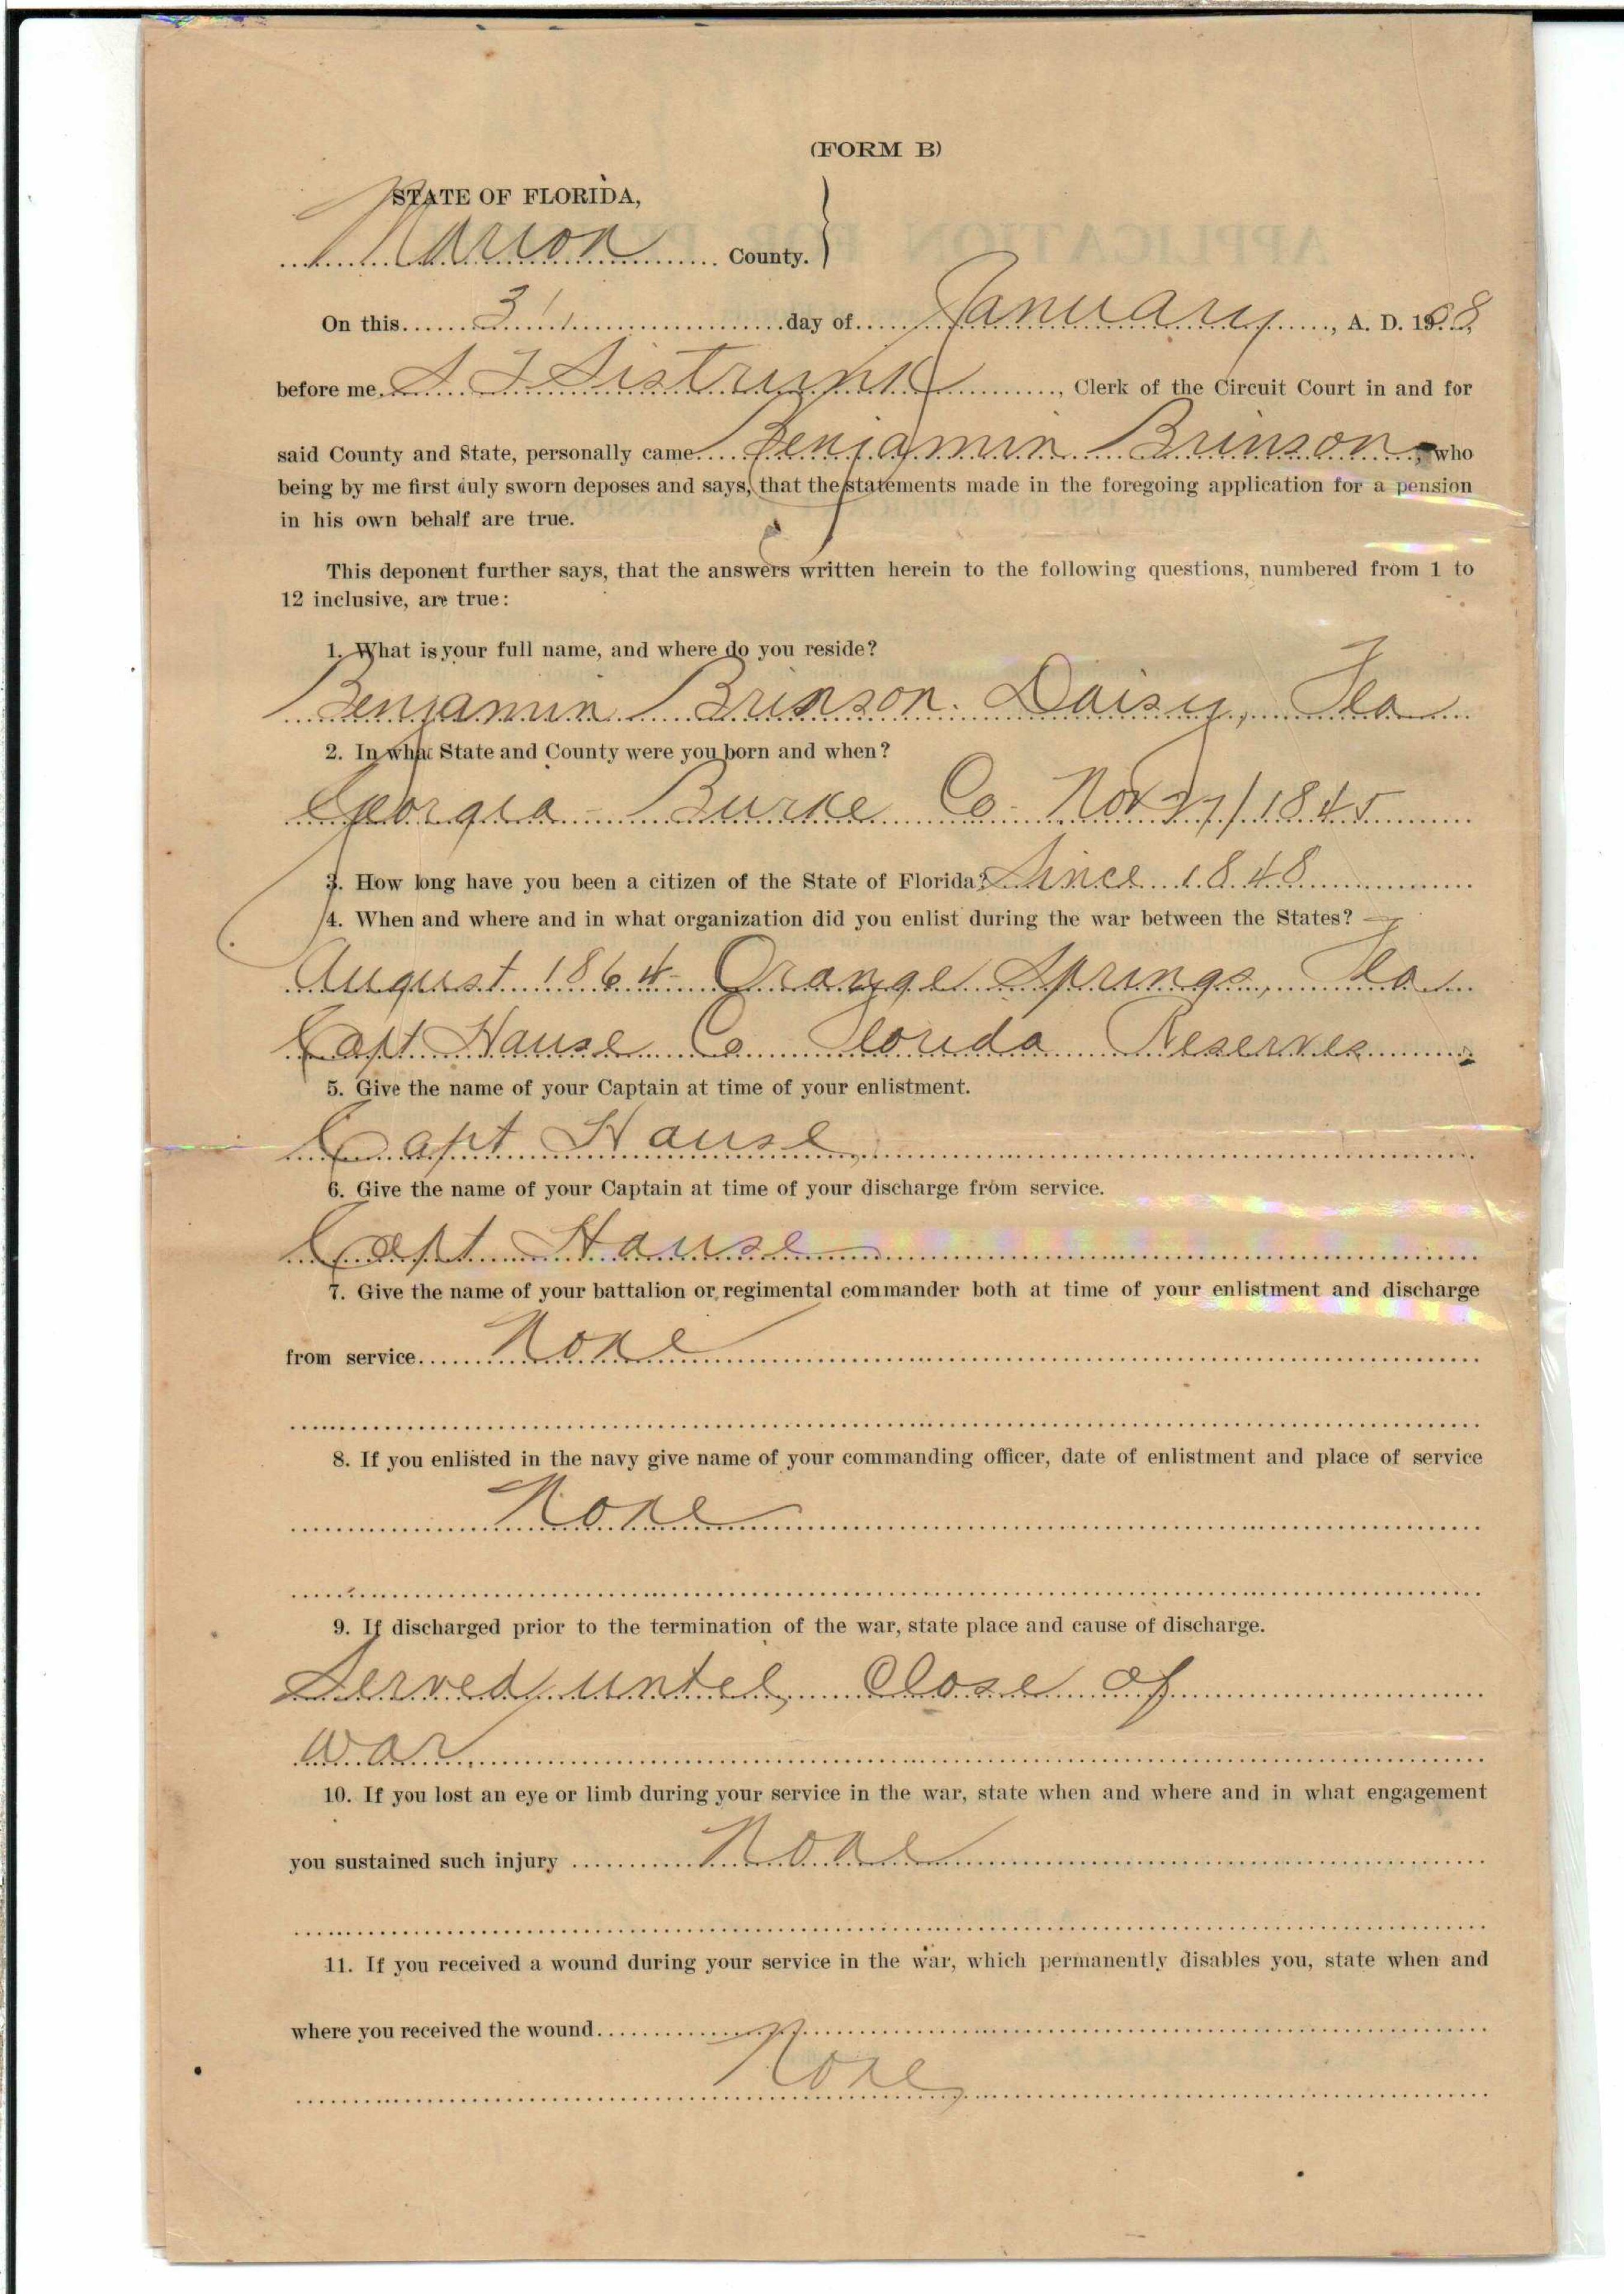 (FORM B)
STATE OF FLORIDA,
Marion County.
On this 31 day of January, A. D. 1908,
before me S. T. Sistrunk, Clerk of the Circuit Court in and for
said County and State, personally came Benjamin Brinson, who
being by me first duly sworn deposes and says, that the statements made in the foregoing application for a pension
in his own behalf are true.
This deponent further says, that the answers written herein to the following questions, numbered from 1 to
12 inclusive, are true:
1. What is your full name, and where do you reside?
Benjamin Brinson. Daisy, Fla
2. In what State and County were you born and when?
Georgia - Burke Co. Nov 27/1845
3. How long have you been a citizen of the State of Florida? Since 1848
4. When and where and in what organization did you enlist during the war between the States?
August 1864 - Orange Springs, Fla
Capt Hause Co Florida Reserves
5. Give the name of your Captain at time of your enlistment.
Capt Hause
6. Give the name of your Captain at time of your discharge from service.
Capt Hause
7. Give the name of your battalion or regimental commander both at time of your enlistment and discharge
from service None
8. If you enlisted in the navy give name of your commanding officer, date of enlistment and place of service
None
9. If discharged prior to the termination of the war, state place and cause of discharge.
Served until Close of
war
10. If you lost an eye or limb during your service in the war, state when and where and in what engagement
you sustained such injury None
11. If you received a wound during your service in the war, which permanently disables you, state when and
where you received the wound
None